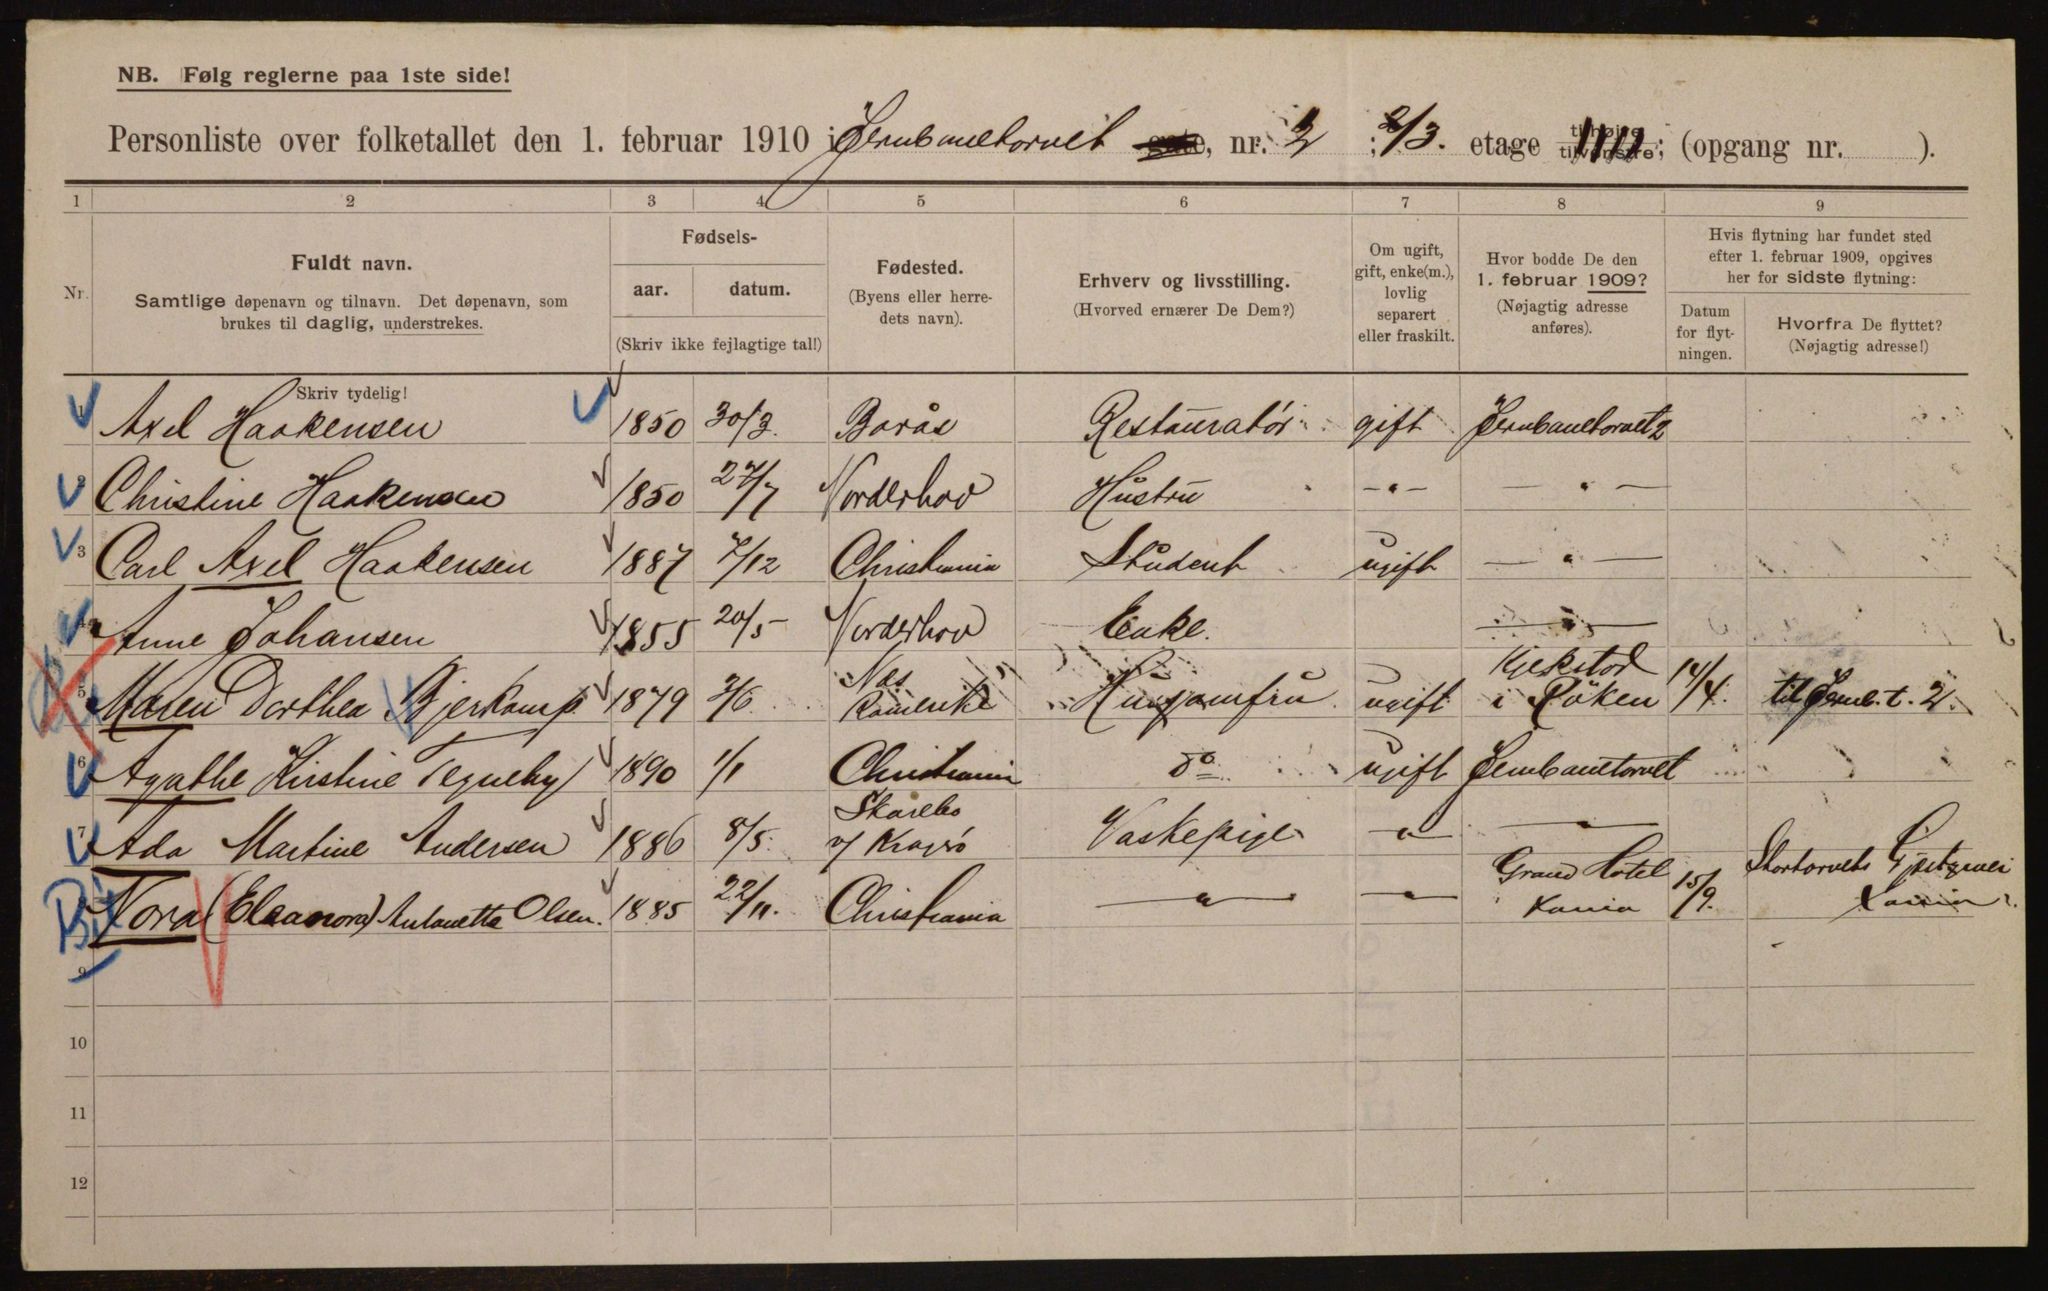 NB. Følg reglerne paa 1ste side!
Personliste over folketallet den 1. februar 1910 i Jernbanetorvet gate, nr. 2 ; 2/3. etage tilhøjre tilvenstre; (opgang nr. ).
1 2 3 4 5 6 7 8 9
Nr.
Fuldt navn.
Samtlige døpenavn og tilnavn. Det døpenavn, som
brukes til daglig, understrekes.
Skriv tydelig!
Fødsels-
aar. datum.
(Skriv ikke fejlagtige tal!)
Fødested.
(Byens eller herre-
dets navn).
Erhverv og livsstilling.
(Hvorved ernærer De Dem?)
Om ugift,
gift, enke(m.),
lovlig
separert
eller fraskilt.
Hvor bodde De den
1. februar 1909?
(Nøjagtig adresse
anføres).
Hvis flytning har fundet sted
efter 1. februar 1909, opgives
her for sidste flytning:
Datum
for flyt-
ningen.
Hvorfra De flyttet?
(Nøjagtig adresse!)
1 Axel Haakensen 1850 30/3. Borås Restauratør gift Jernbanetorvet 2
2 Christine Haakensen 1850 27/7 Norderhov Hustru -"- — " —
3 Carl Axel Haakensen 1887 7/12 Christiania Student ugift — " —
4 Anne Johansen 1855 20/5 Norderhov Enke. — " —
5 Maren Dorthea Bjerkamp 1879 3/6 Nes Romerike Husjomfru ugift Kjekstad i Röken 14/4. til Jernb. t. 2.
6 Agathe Kirstine Tegneby 1890 1/1 Christiania do ugift Jernbanetorvet
7 Ada Martine Andersen 1886 8/5. Skarebo v/ Kragerö Vaskepige — " — — " —
Nora (Eleanora) Antonette Olsen. 1885 22/11. Christiania — " — — " — Grand Hotel Kania 15/9. Stortorvets Gjestgiveri Kania
9
10
11
12